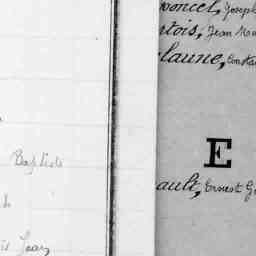 Baptiste
Jean
poncel, Joseph
rtois, Jean Ma
laune, Consta
E
ault, Ernest G